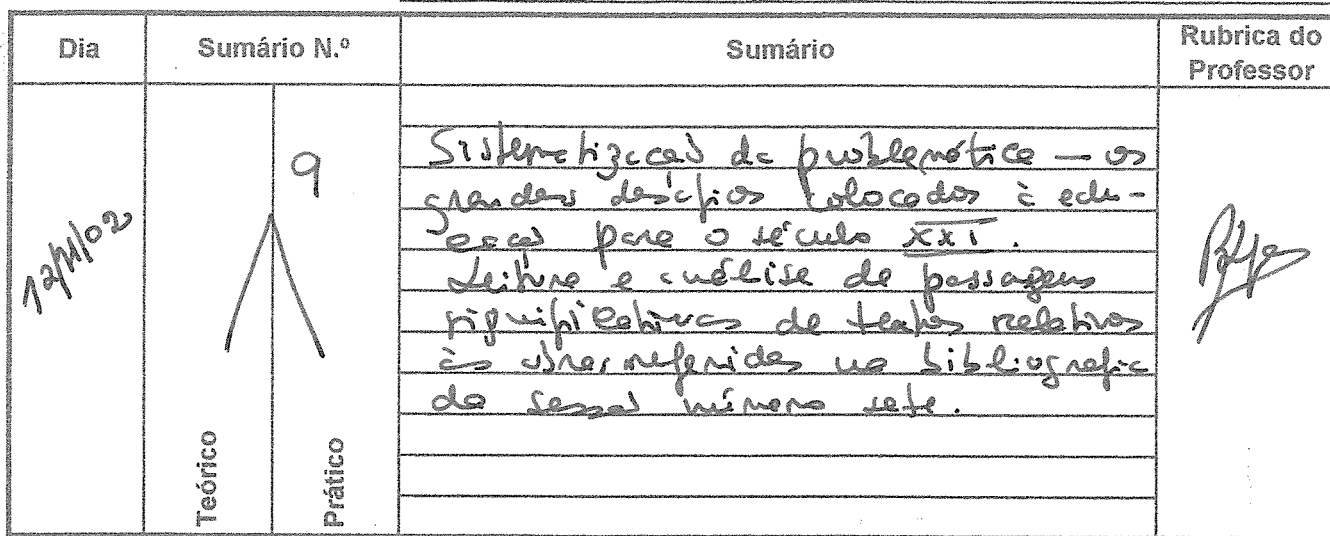 Dia
Sumário N.º
Sumário
Rubrica do
Professor
12/11/02
9
Sistematização da problemática — os
grandes desafios colocados à edu-
cação para o século XXI.
Leitura e análise de passagens
significativas de textos relativos
às obras referidas na bibliografia
da sessão número sete.
Teórico
Prático